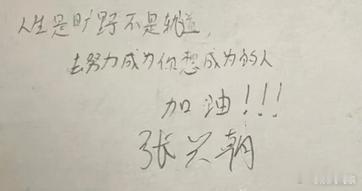 人生是旷野不是轨道,
去努力成为你想成为的人
加油!!!
张兴朝